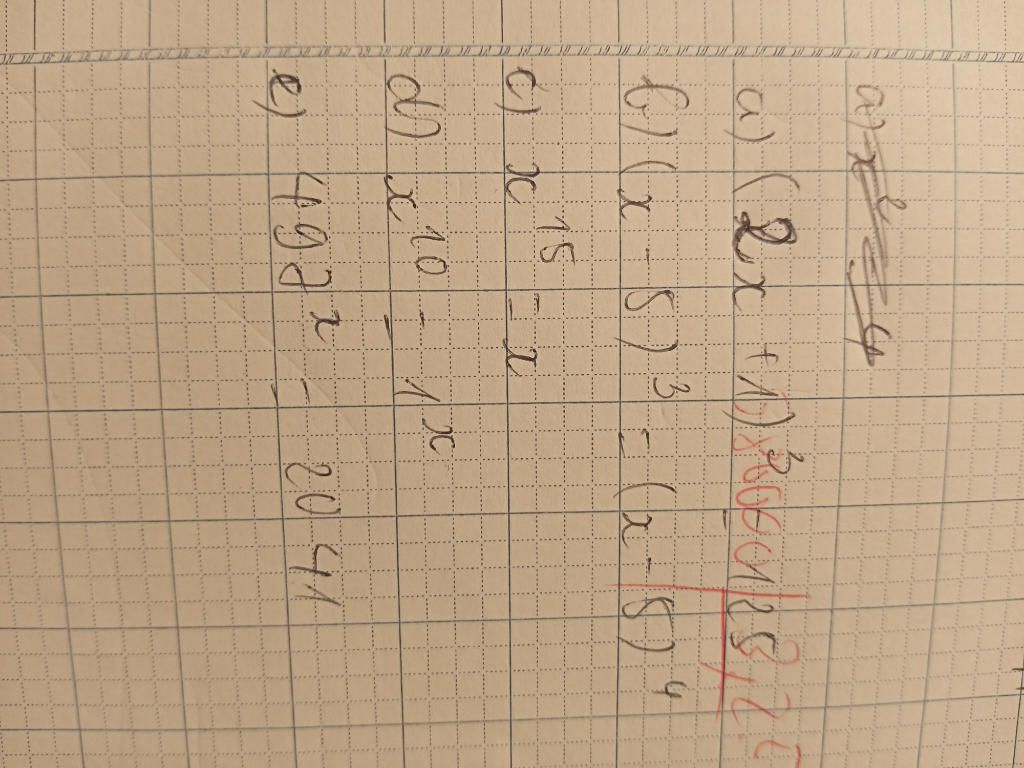 a) x² = 4
a) (2x + 1)³ = 125
b) (x - 5)³ = (x - 5)⁴
c) x¹⁵ = x
d) x¹⁰ = 1ˣ
e) 497ˣ = 2041